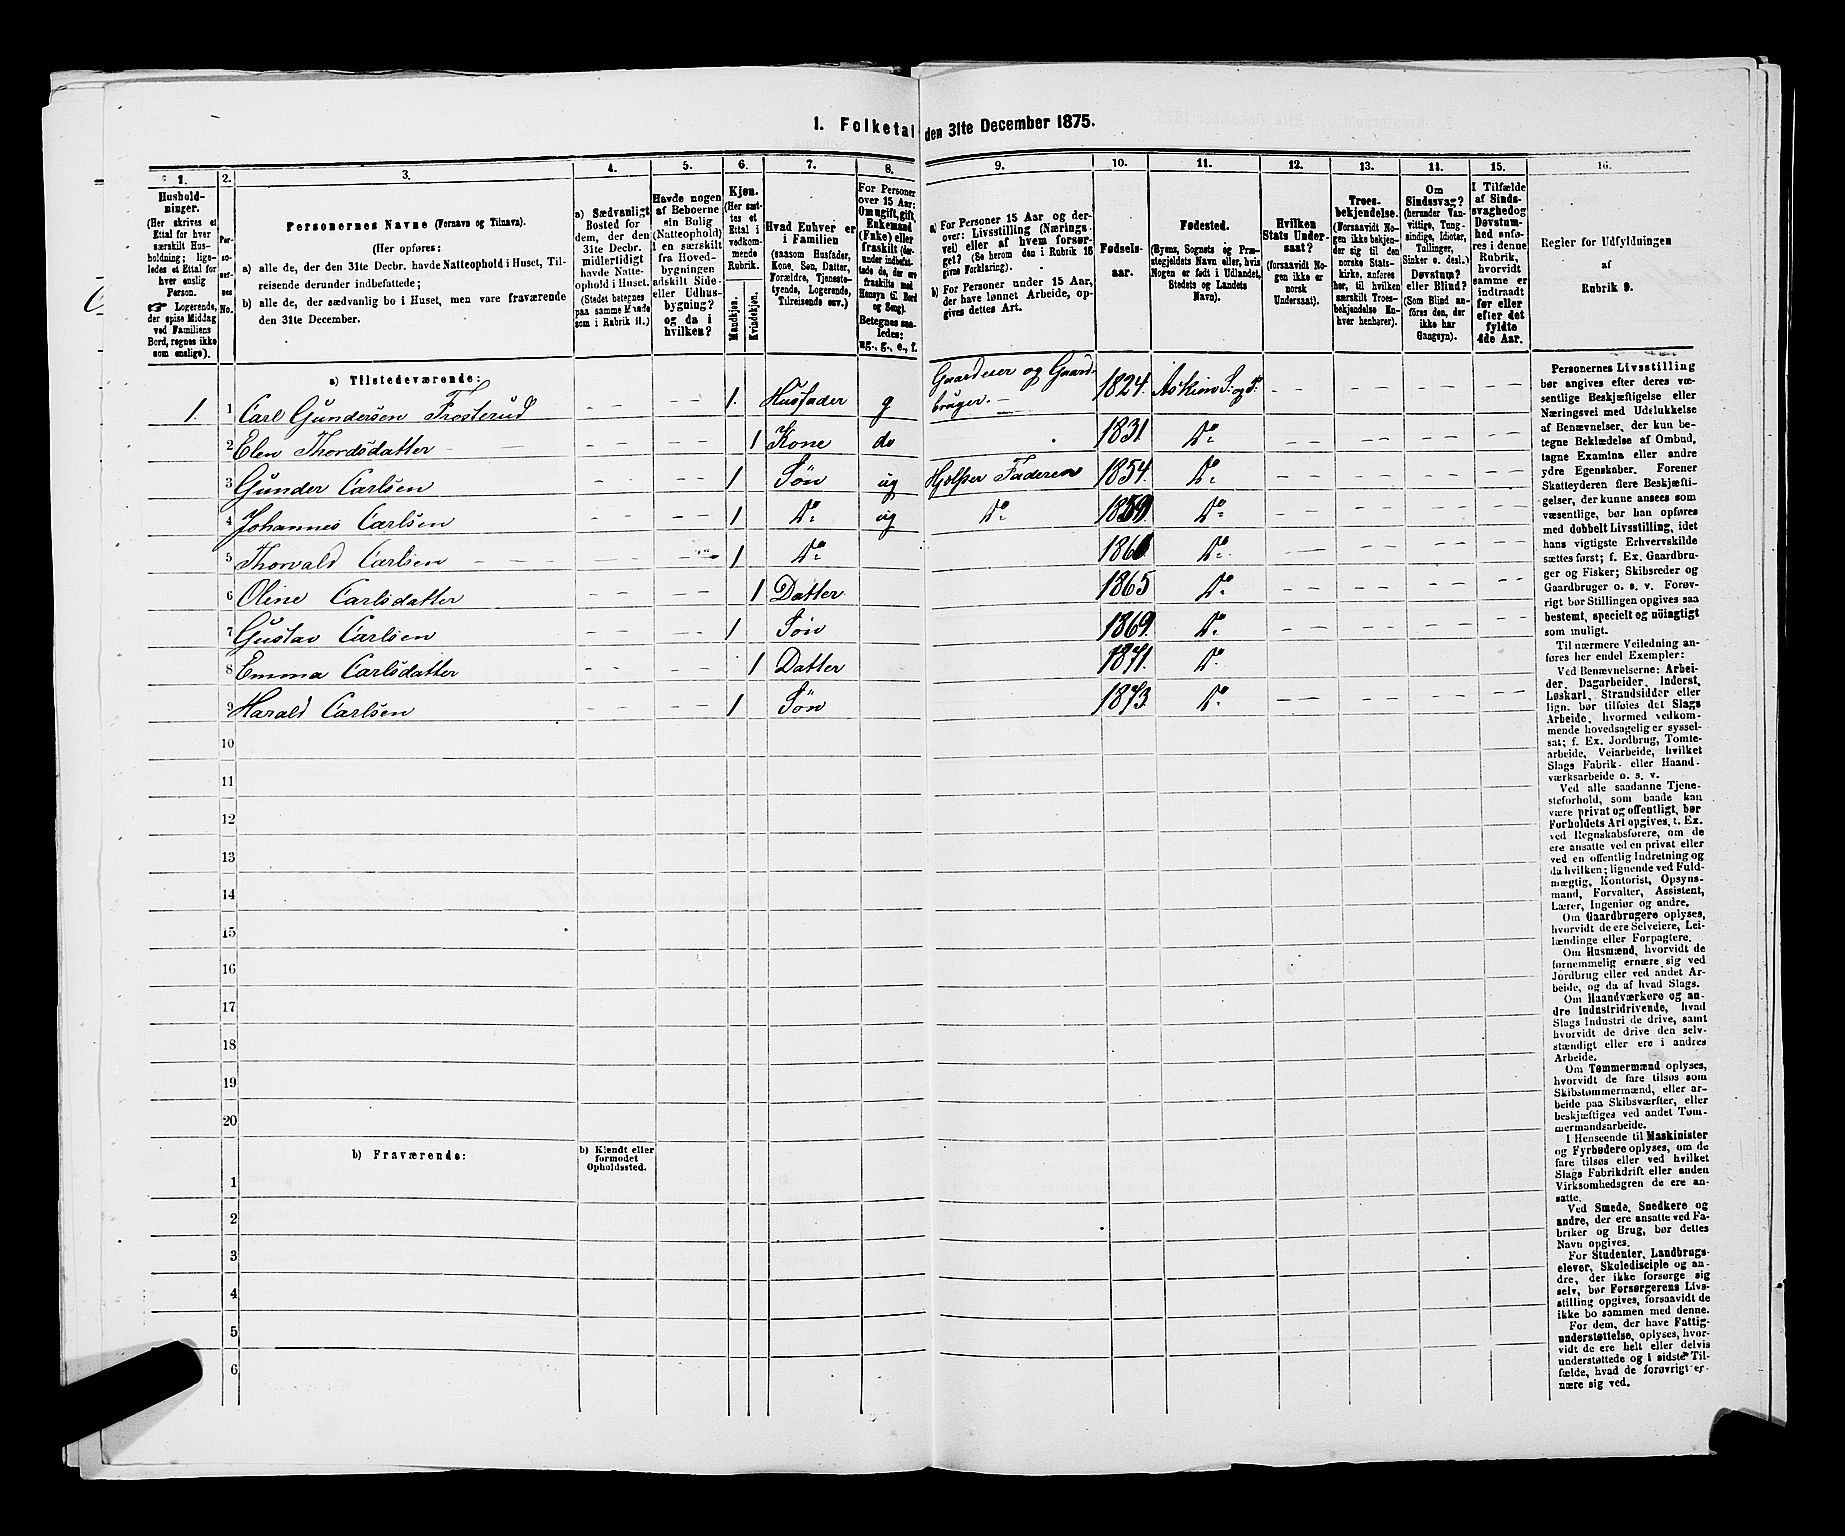 1. Folketal den 31te December 1875.
1.
2.
3.
4.
5.
6.
7.
8.
9.
10.
11.
12.
13.
14.
15.
16.
Hushold-
ninger.
(Her skrives et
Ettal for hver
særskilt Hus-
holdning; lige-
ledes et Ettal for
hver enslig
Person.
☞ Logerende,
der spise Middag
ved Familiens
Bord, regnes ikke
som enslige).
Per-
so-
ner-
nes
No.
Personernes Navne (Fornavn og Tilnavn).
(Her opføres:
a) alle de, der den 31te Decbr. havde Natteophold i Huset, Til-
reisende derunder indbefattede;
b) alle de, der sædvanlig bo i Huset, men vare fraværende
den 31te December.
a) Sædvanligt
Bosted for
dem, der den
31te Decbr.
midlertidigt
havde Natte-
ophold i Huset.
(Stedet betegnes
paa samme Maade
som i Rubrik 11.)
Havde nogen
af Beboerne
sin Bolig
(Natteophold)
i en særskilt
fra Hoved-
bygningen
adskilt Side-
eller Udhus-
bygning?
og da i
hvilken?
Kjøn.
(Her sæt-
tes et
Ettal i
vedkom-
mende
Rubrik.
Mandkjøn.
Kvindekjøn.
Hvad Enhver er
i Familien
(saasom Husfader,
Kone, Søn, Datter,
Forældre, Tjeneste-
tyende, Logerende,
Tilreisende osv.)
For Personer
over 15 Aar:
Om ugift, gift,
Enkemand
(Enke) eller
fraskilt (her-
under indbefat-
tede de, der ere
fraskilte med
Hensyn til Bord
og Seng).
Betegnes saa-
ledes:
ug., g., e., f.
a) For Personer 15 Aar og der-
over: Livsstilling (Nærings-
vei) eller af hvem forsør-
get? (Se herom den i Rubrik 16
givne Forklaring).
b) For Personer under 15 Aar,
der have lønnet Arbeide, op-
gives dettes Art.
Fødsels-
aar.
Fødested.
(Byens, Sognets og Præ-
stegjeldets Navn eller, hvis
Nogen er født i Udlandet,
Stedets og Landets
Navn).
Hvilken
Stats Under-
saat?
(forsaavidt No-
gen ikke er
norsk
Undersaat).
Troes-
bekjendelse.
(Forsaavidt No-
gen ikke bekjen-
der sig til den
norske Stats-
kirke, anføres
her, til hvilken
særskilt Troes-
bekjendelse En-
hver henhører).
Om
Sindssvag?
(herunder Van-
vittige, Tung-
sindige, Idioter,
Tullinger,
Sinker o. desl.)
Døvstum?
eller Blind?
(Som Blind an-
føres den, der
ikke har
Gangsyn).
I Tilfælde
af Sinds-
svaghed og
Døvstum-
hed anfø-
res i denne
Rubrik,
hvorvidt
samme er
indtraadt
før eller
efter det
fyldte
4de Aar.
Regler for Udfyldningen
af
Rubrik 9.
a) Tilstedeværende:
1 1 Carl Gundersen Frosterud - - - - 1. Husfader g Gaardeier og Gaard-
bruger. 1824. Askim S. og P. - - - - - - - -
2 Elen Thordsdatter - 1 Kone do 1831 Do - - - - - - - -
3 Gunder Carlsen - - - - 1 Søn ug Hjelper Faderen 1854. Do - - - - - - - -
4 Johannes Carlsen - - - - 1 Do ug Do 1859. Do - - - - - - - -
5 Thorvald Carlsen - - - - 1 Do Do - - - - - - - -
6 Oline Carlsdatter - - - - 1 Datter 1865 Do - - - - - - - -
7 Gustav Carlsen - - - - 1 Søn 1869. Do - - - - - - - -
8 Emma Carlsdatter - - - - 1 Datter 1871. Do - - - - - - - -
9 Harald Carlsen - - - - 1 Søn 1873. Do - - - - - - - -
10
11
12
13
14
15
16
17
18
19
20
b) Fraværende:
b) Kjendt eller
formodet
Opholdssted.
1
2
3
4
5
6
Personernes Livsstilling
bør angives efter deres væ-
sentlige Beskjæftigelse eller
Næringsvei med Udelukkelse
af Benævnelser, der kun be-
tegne Beklædelse af Ombud,
tagne Examina eller andre
ydre Egenskaber. Forener
Skatteyderen flere Beskjæfti-
gelser, der kunne ansees som
væsentlige, bør han opføres
med dobbelt Livsstilling, idet
hans vigtigste Erhvervskilde
sættes først; f. Ex. Gaardbru-
ger og Fisker; Skibsreder og
Gaardbruger o. s. v. Forøv-
rigt bør Stillingen opgives saa
bestemt, specielt og nöiagtigt
som muligt.
Til nærmere Veiledning an-
føres her endel Exempler:
Ved Benævnelserne: Arbei-
der, Dagarbeider, Inderst,
Løskarl, Strandsidder eller
lign. bør tilføies det Slags
Arbeide, hvormed vedkom-
mende hovedsagelig er syssel-
sat; f. Ex. Jordbrug, Tomte-
arbeide, Veiarbeide, hvilket
Slags Fabrik- eller Haand-
værksarbeide o. s. v.
Ved alle saadanne Tjene-
steforhold, som baade kan
være privat og offentligt, bør
Forholdets Art opgives, t. Ex.
ved Regnskabsførere, om de
ere ansatte ved en privat eller
ved en offentlig Indretning og
da hvilken; lignende ved Fuld-
mægtig, Kontorist, Opsyns-
mand, Forvalter, Assistent,
Lærer, Ingeniør og andre.
Om Gaardbrugere oplyses,
hvorvidt de ere Selveiere, Lei-
lændinge eller Forpagtere.
Om Husmænd, hvorvidt de
fornemmelig ernære sig ved
Jordbrug eller ved andet Ar-
beide, og da af hvad Slags.
Om Haandværkere og an-
dre Industridrivende, hvad
Slags Industri de drive, samt
hvorvidt de drive den selv-
stændigt eller ere i andres
Arbeide.
Om Tømmermænd oplyses,
hvorvidt de fare tilsøs som
Skibstømmermænd, eller ar-
beide paa Skibsværfter, eller
beskjæftiges ved andet Tøm-
mermandsarbeide.
I Henseende til Maskinister
og Fyrbødere oplyses, om de
fare tilsøs eller ved hvilket
Slags Fabrikdrift eller anden
Virksomhedsgren de ere an-
satte.
Ved Smede, Snedkere og
andre, der ere ansatte ved Fa-
briker og Brug, bør dettes
Navn opgives.
For Studenter, Landbrugs-
elever, Skoledisciple og an-
dre, der ikke forsørge sig
selv, bør Forsørgerens Livs-
stilling opgives, forsaavidt de
ikke bo sammen med denne.
For dem, der have Fattig-
understøttelse, oplyses, hvor-
vidt de ere helt eller delvis
understøttede og i sidste Til-
fælde, hvad de forøvrigt er-
nære sig ved.